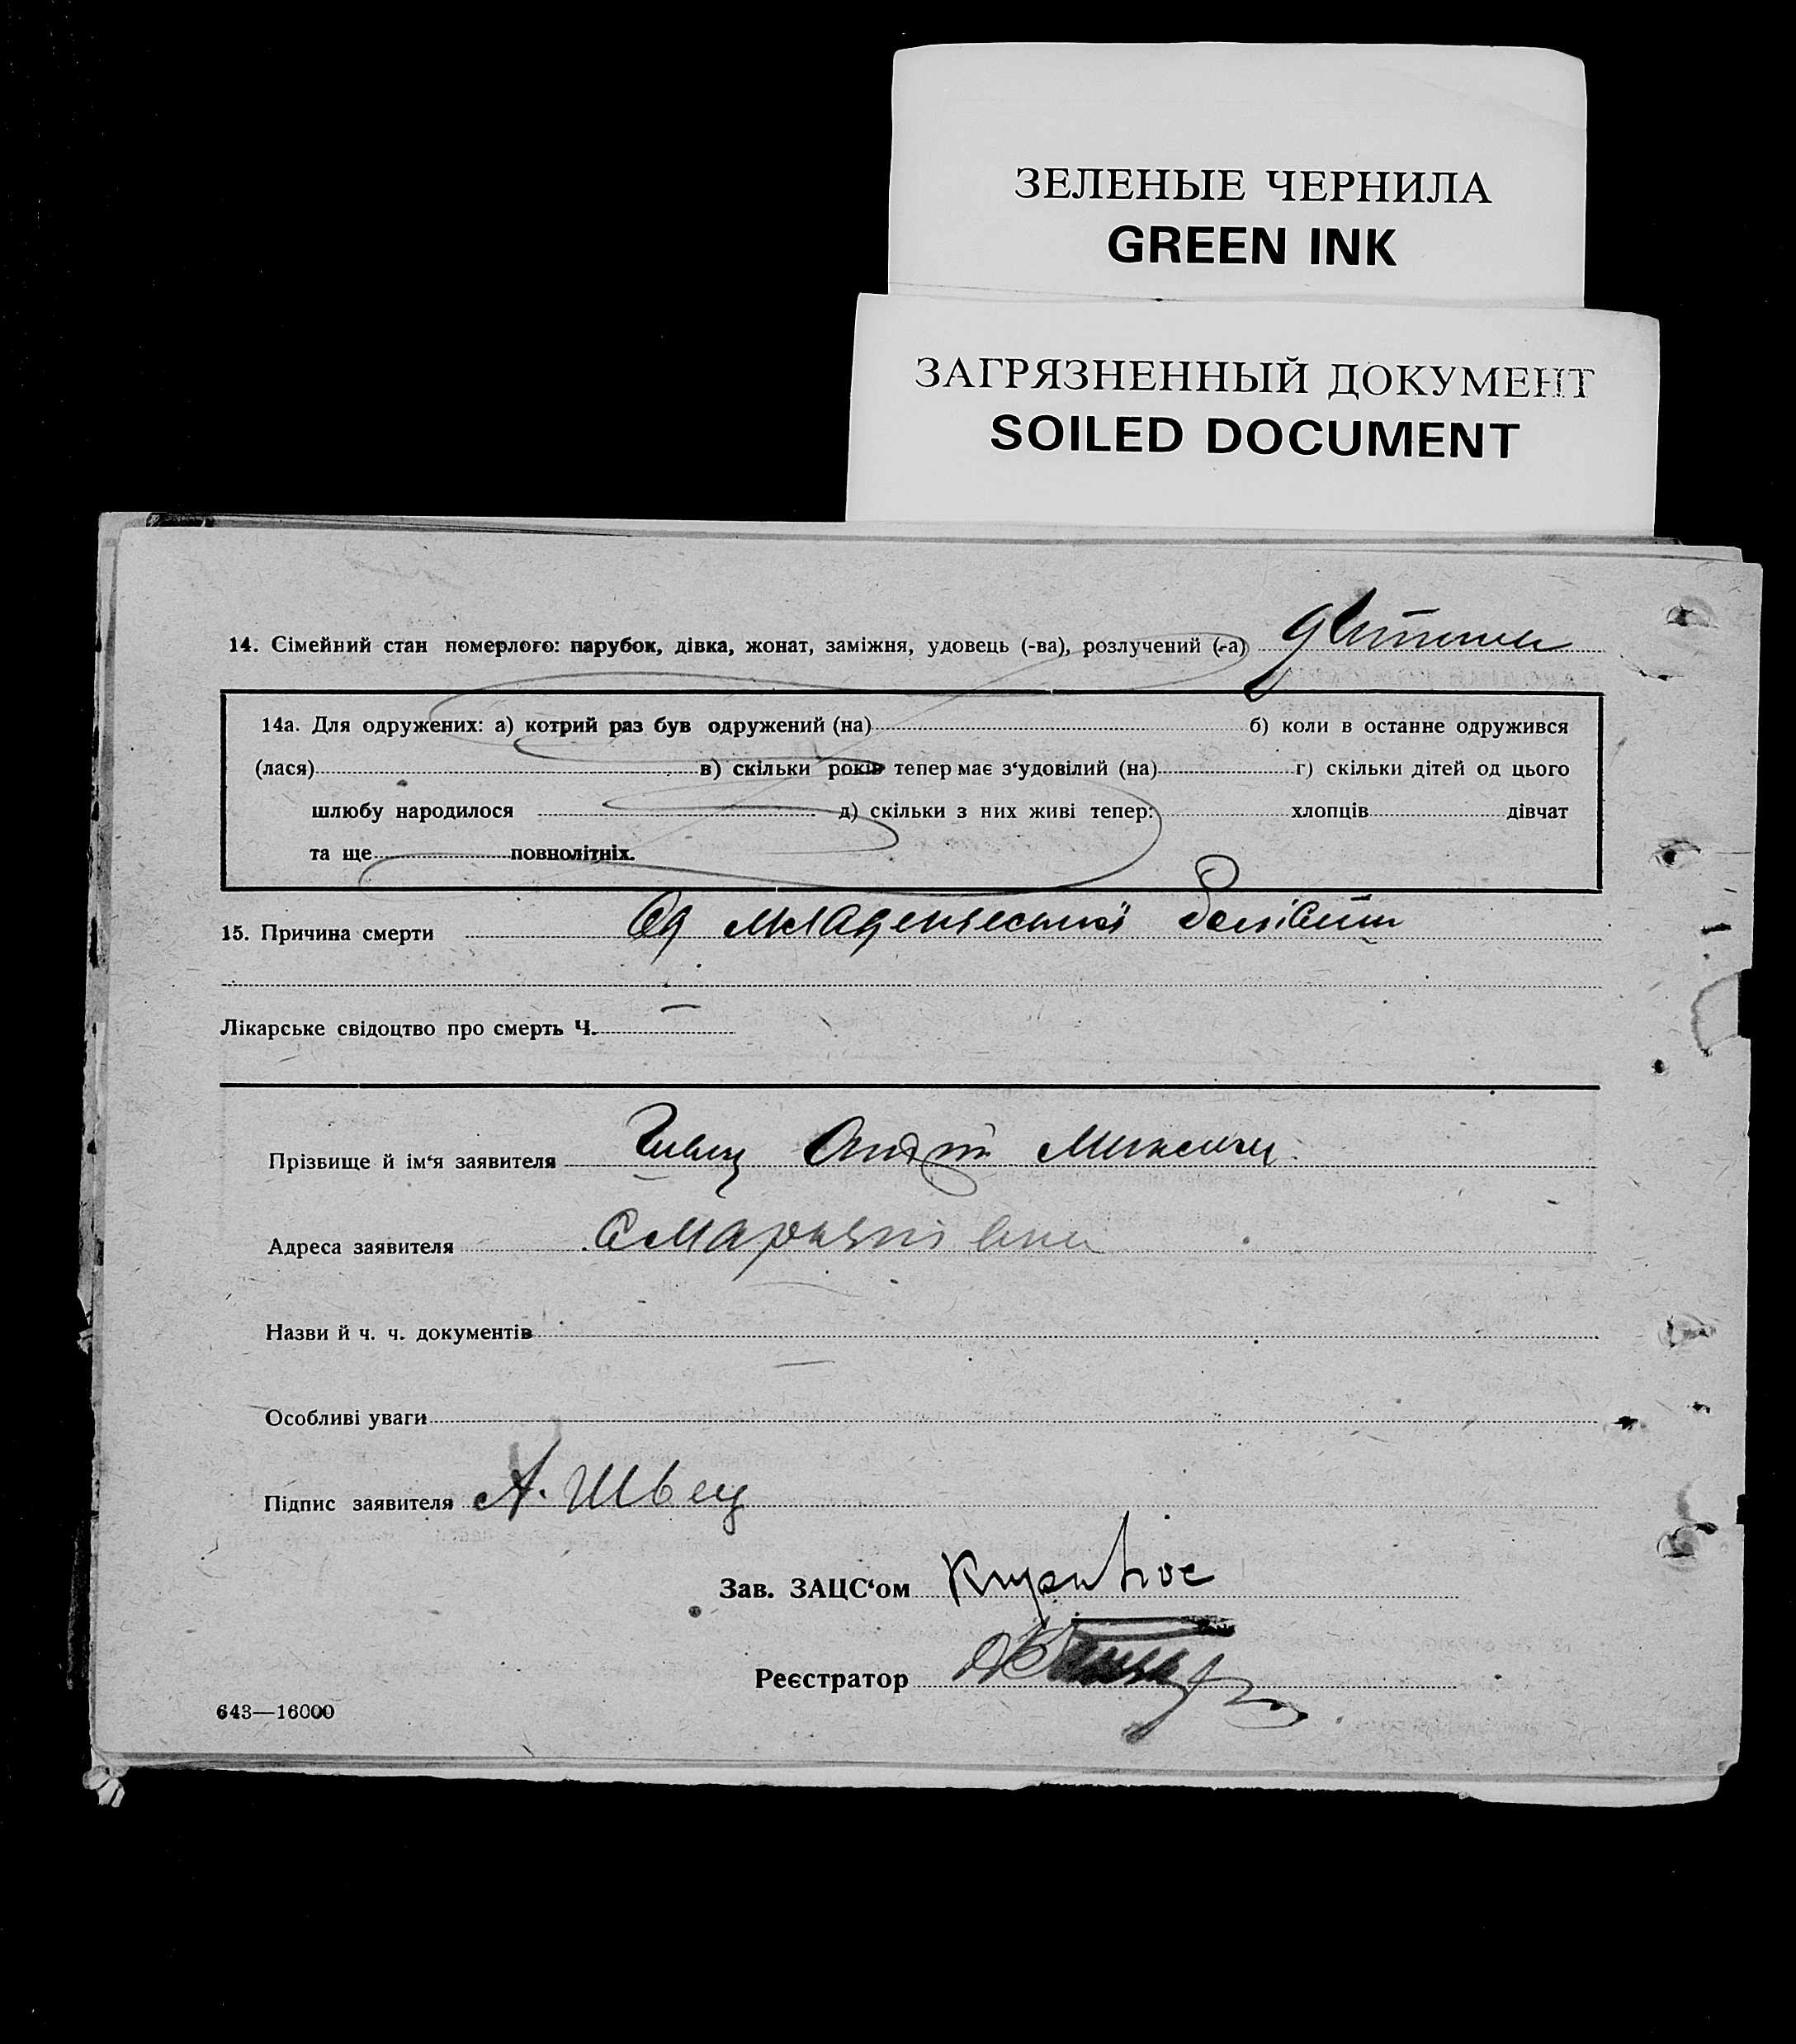 ЗЕЛЕНЫЕ ЧЕРНИЛА
GREEN INK
ЗАГРЯЗНЕННЫЙ ДОКУМЕНТ
SOILED DOCUMENT
14. Сімейний стан померлого: парубок, дівка, жонат, заміжня, удовець (-ва), розлучений (-а)
14а. Для одружених: а) котрий раз був одружений (на) б) коли в останне одружився
(лася) в) скільки років тепер має з‘удовілий (на) г) скільки дітей од цього
шлюбу народилося д) скільки з них живі тепер: хлопців дівчат
та ще повнолітніх.
15. Причина смерти Од младенческої
Лікарське свідоцтво про смерть Ч. —
Прізвище й ім‘я заявителя Швец Андрій
Адреса заявителя
Назви й ч. ч. документів
Особливі уваги
Підпис заявителя А. Швец
Зав. ЗАЦС‘ом
Реєстратор
643—16000